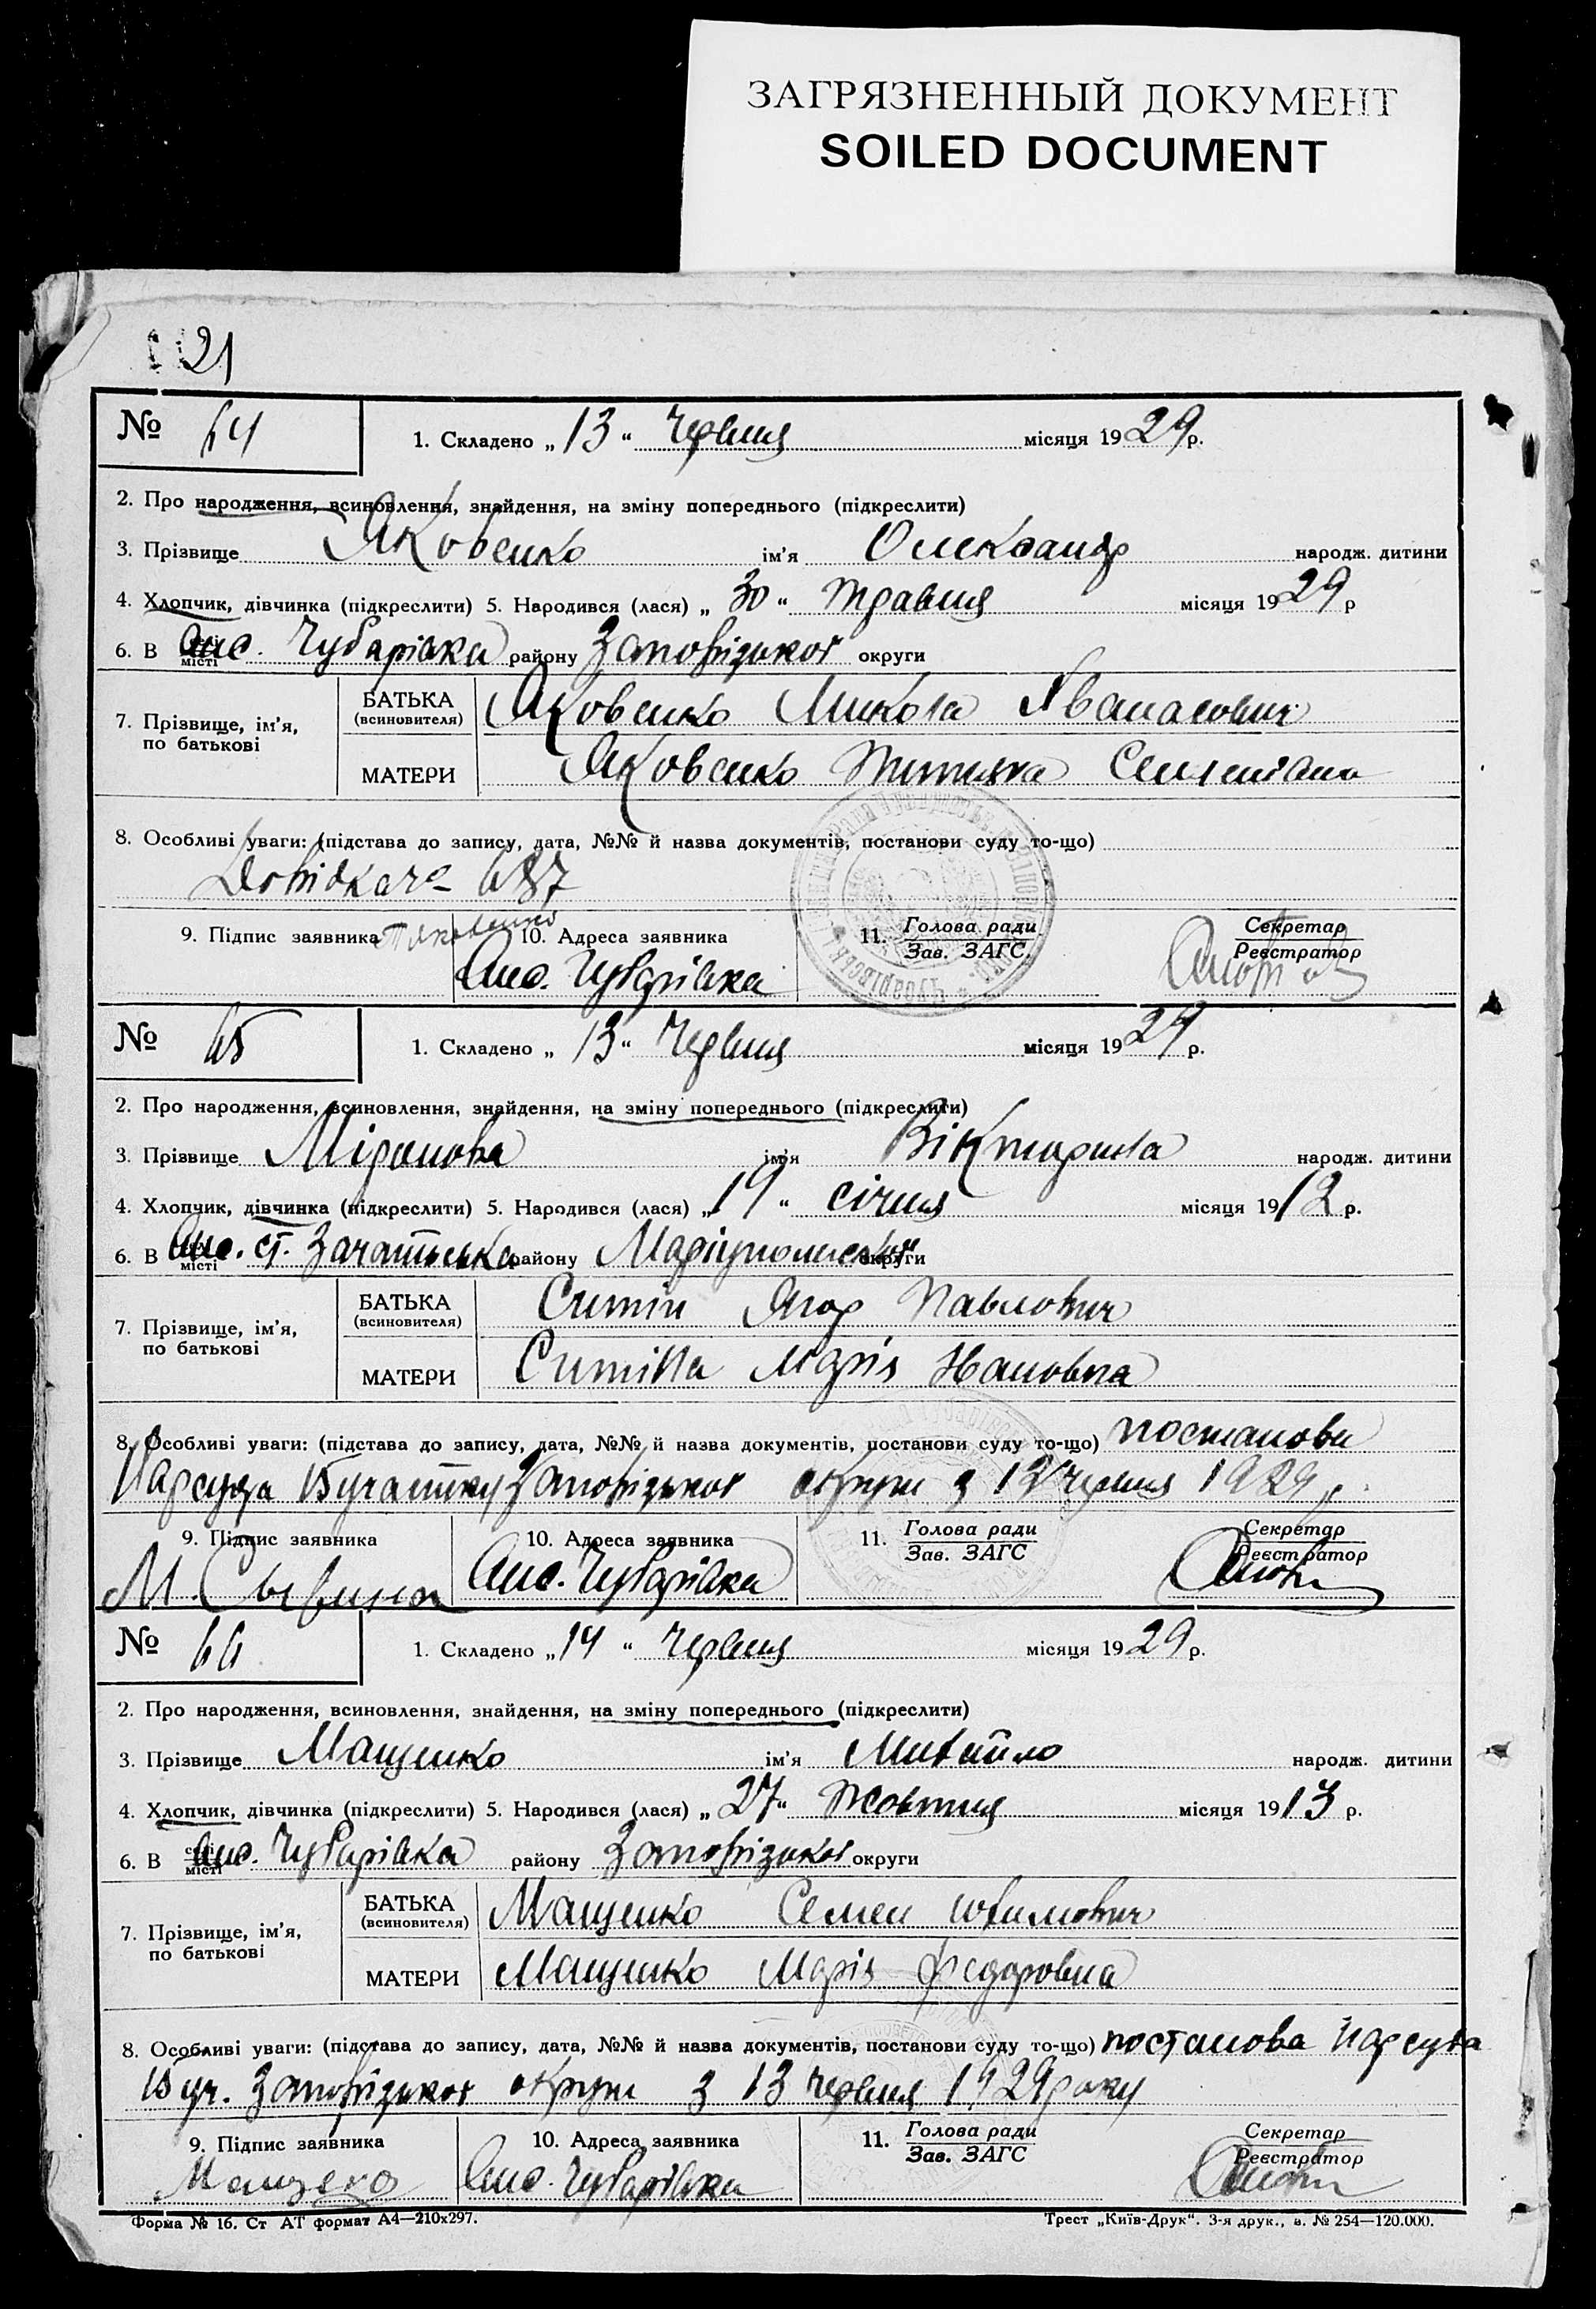 ЗАГРЯЗНЕННЫЙ ДОКУМЕНТ
SOILED DOCUMENT
21
№ 64
1. Складено „13“ Червня місяця 1929 р.
2. Про народження, всиновлення, знайдення, на зміну попереднього (підкреслити)
3. Прізвище Яковенко ім'я Олександр народж. дитини
4. Хлопчик, дівчинка (підкреслити) 5. Народився (лася) „30“ травня місяця 1929 р
6. В місті с. Чубарівка району Запорізької округи
7. Прізвище, ім'я, по батькові
БАТЬКА (всиновителя) Яковенко Микола
МАТЕРИ Яковенко
8. Особливі уваги: (підстава до запису, дата, №№ й назва документів, постанови суду то-що)
Довідка 687
9. Підпис заявника 10. Адреса заявника 11. Голова ради Зав. ЗАГС. Секретар Реєстратор
с. Чубарівка
№ 65
1. Складено „13“ Червня місяця 1929 р.
2. Про народження, всиновлення, знайдення, на зміну попереднього (підкреслити)
3. Прізвище Міронова ім'я народж. дитини
4. Хлопчик, дівчинка (підкреслити) 5. Народився (лася) „19“ січня місяця 1912 р.
6. В місті ст. Зачатьська району Маріупольської округи
7. Прізвище, ім'я, по батькові
БАТЬКА (всиновителя) Ситін Ягор Павлович
МАТЕРИ Ситіна Марія
8. Особливі уваги: (підстава до запису, дата, №№ й назва документів, постанови суду то-що) постанова
Нарсуда 15 участку Запорізької округи з 12 червня 1929 р.
9. Підпис заявника 10. Адреса заявника 11. Голова ради Зав. ЗАГС Секретар Реєстратор
с. Чубарівка
№ 66
1. Складено „14“ Червня місяця 1929 р.
2. Про народження, всиновлення, знайдення, на зміну попереднього (підкреслити)
3. Прізвище Мащенко ім'я Михайло народж. дитини
4. Хлопчик, дівчинка (підкреслити) 5. Народився (лася) „27“ Жовтня місяця 1913 р.
6. В місті с. Чубарівка району Запорізької округи
7. Прізвище, ім'я, по батькові
БАТЬКА (всиновителя) Мащенко Семен Юхимович
МАТЕРИ Мащенко Марія Федоровна
8. Особливі уваги: (підстава до запису, дата, №№ й назва документів, постанови суду то-що) постанова Нарсуда
15 уч. Запорізької округи з 13 червня 1929 року
9. Підпис заявника 10. Адреса заявника 11. Голова ради Зав. ЗАГС Секретар Реєстратор
с. Чубарівка
Форма № 16. Ст АТ формат А4—210x297. Трест „Київ-Друк“. 3-я друк., з. № 254—120.000.